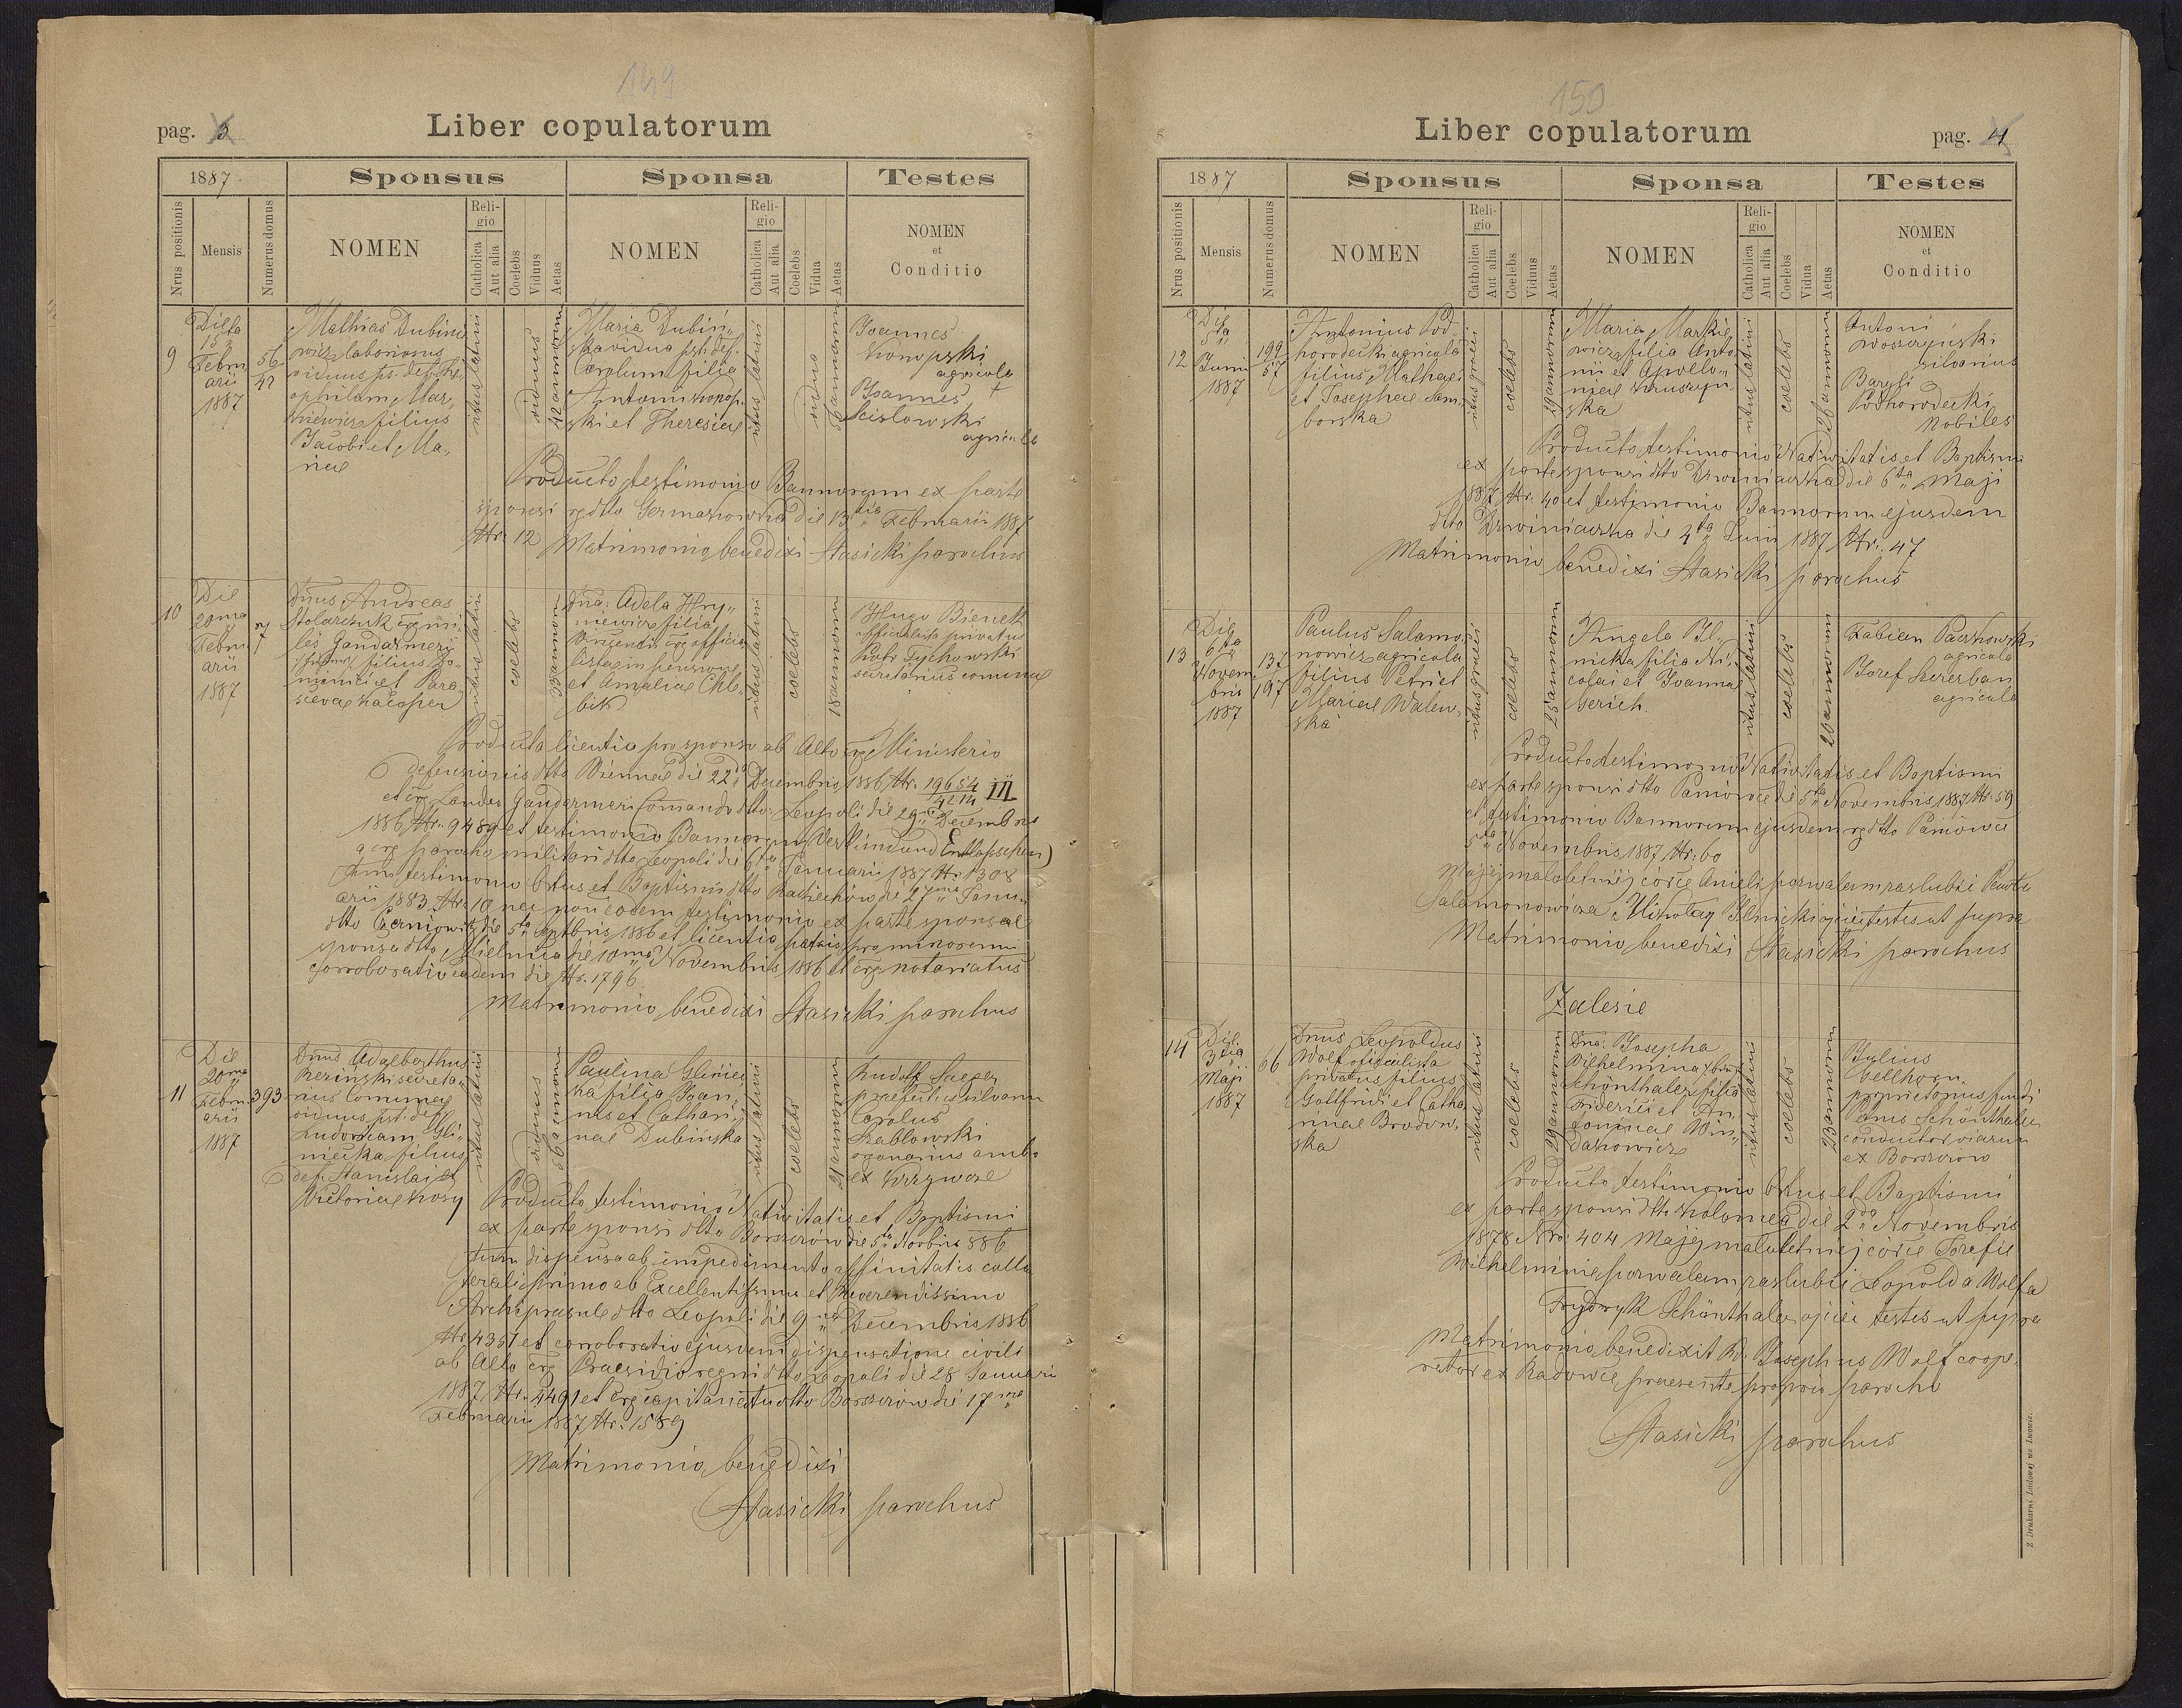 149
pag. 3
Liber copulatorum
1887.
Sponsus
Sponsa
Testes
Nrus positionis
Mensis
Numerus domus
NOMEN
Religio
Catholica
Aut alia
Coelebs
Viduus
Aetas
NOMEN
Religio
Catholica
Aut alia
Coelebs
Vidua
Aetas
NOMEN
et
Conditio
9
Die
15ta
Febru
arii
1887
56
42
Mathias Dubinie
wicz laboriosus
viduus
Mar
kiewicz filius
Jacobi et Ma„
riae
ritus latini
viduus
42 annorum
Maria Dubiń„
ska vidua pst. def.
Carolum filia
Antonii Konop
ski et Theresiae
ritus latini
vidua
annorum
Joannes
Konopski
agricola
+
Joannes
Scislowski
agricola
Producto testimonio Bannorum ex parte
sponsi dtto Germakowka die 13tia Februarii 1887
Nr. 12 Matrimonio benedixi Stasicki parochus
10
Die
20ma
Febru
arii
1887
Dnus Andreas
Stolarczuk crg mi„
les Gandarmeri
filius Do„
minici et Para„
scevae Kacoper
ritus latini
coelebs
33 annorum
Dna: Adela Hry„
niewicz filia
Vincentii crg officia
listae in pensione
et Amaliae Chl„
bik
ritus latini
coelebs
18 annorum
Hugo Bienek
officialista privatus
Piotr Tychowski
secretarius comunae
Producta licentia pro sponso ab Alto crg Ministerio
defensionis dtto Viennae die 22da Decembris 1886 Nr. 19654/4214 III
et crg Landes Gandarmeri Comando dtto Leopoli die 29na Decembris
1886 Nr. 9489 et testimonio Bannorum (Verkünd und Entlasschein)
a crg parocho militari dtto Leopoli die 6ta Januarii 1887 Nr. 1308
tum testimonio Ortus et Baptismi dtto Radziechów die 27ma Janu„
arii 1883 Nr. 10 nec non eodem testimonio ex parte sponsae
dtto Czerniowitz die 5ta Septbris 1886 et licentia patris pro minorenni
sponsa dtto Mielnica die 10ma Novembris 1886 et crg notariatus
corroborativ eadem die Nr. 1796.
Matrimonio benedixi Stasicki parochus
11
Die
20ma
Febru
arii
1887
393
Dnus Adalberthus
Rezinski secreta„
rius Comunae
viduus pst. def.
Ludovicam Gli„
niecka filius
def. Stanislai et
Victoriae Kosy
ritus latini
viduus
annorum
Paulina Gliniec
ka filia Joan„
nis et Cathari„
nae Dubińska
ritus latini
coelebs
21 annorum
Rudolf Saeper
praefectus silvarum
Carolus
Zablowski
organarius ambo
ex Krzywcze
Producto testimonio Nativitatis et Baptismi
ex parte sponsi dtto Borszczów die 5ta Novbris 886
tum dispensa ab impedimento affinitatis colla
terali primo ab Excellentissimo et Reverendissimo
Archipraesule dtto Leopoli die 9na Decembris 1886
Nr. 4351 et corroborativ ejusdem dispensatione civili
ab Alto crg Praesidio regni dtto Leopoli die 28 Januari
1887 Nr. 4491 et crg capitaneatu dtto Borszczów die 17ma
Februarii 1887 Nr. 1589
Matrimonio benedixi
Stasicki parochus
150
Liber copulatorum
pag. 4
1887
Sponsus
Sponsa
Testes
Nrus positionis
Mensis
Numerus domus
NOMEN
Religio
Catholica
Aut alia
Coelebs
Viduus
Aetas
NOMEN
Religio
Catholica
Aut alia
Coelebs
Vidua
Aetas
NOMEN
et
Conditio
12
Die
5ta
Junii
1887
199
57
Antonius Pod„
horodecki agricola
filius Mathaei
et Josephae Sam„
borska
ritus graeci
coelebs
annorum
Maria Markie
wicz filia Anto
nii et Apollo„
niae Kruszyń
ska
ritus latini
coelebs
annorum
Antoni
Woszczyński
silvarius
Bazyli
Podhorodecki
nobiles
Producto testimonio Nativitatis et Baptismi
ex parte sponsi dtto Dzwiniaczka die 6ta Maji
1887 Nr. 40 et testimonio Bannorum ejusdem
dtto Dzwiniaczka die 4ta Junii 1887 Nr. 47
Matrimonio benedixi Stasicki parochus
13
Die
6ta
Novem
bris
1887
137
197
Paulus Salamo„
nowicz agricola
filius Petri et
Mariae Walew„
ska
ritus graeci
coelebs
25 annorum
Angela Il„
nicka filia Ni„
colai et Joanna
Gerich
ritus latini
coelebs
20 annorum
Fabian Paczkowski
agricola
Jozef Szczerban
agricola
Producto testimonio Nativitatis et Baptismi
ex parte sponsi dtto Paniowce die 5ta Novembris 1887 Nr. 59
et testimonio Bannorum ejusdem dtto Paniowce
5ta Novembris 1887 Nr. 60
Mojej maloletniej córce Anieli pozwalam zaslubić Pawla
Salamonowicza Mikolay Ilnicki ojciec testes ut supra
Matrimonio benedixi Stasicki parochus
Zalesie
14
Die
3tia
Maji
1887
66
Dnus Leopoldus
Wolf oficialista
privatus filius
Gottfridi et Catha
rinae Brodow„
ska
ritus latini
coelebs
29 annorum
Dna: Josepha
Wilhelmina
Schönthaler filia
Friderici et An„
toninae Win„
dakowicz
ritus latini
coelebs
23 annorum
Julius
Gellhorn
proprietarius fundi
Schönthaler
conductor viarum
ex Borszczow
Producto testimonio Ortus et Baptismi
ex parte sponsi dtto Kolomea die 2da Novembris
1878 Nro: 404 Mojej maloletniej córce Jozefie
Wilhelminie pozwalam zaslubić Leopolda Wolfa
Frydryk Schönthaler ojciec testes ut supra
Matrimonio benedixit Rd. Josephus Wolf coop„
rator ex Radowce praesente proprio parocho
Stasicki parochus
Z Drukarni Ludowej we Lwowie.